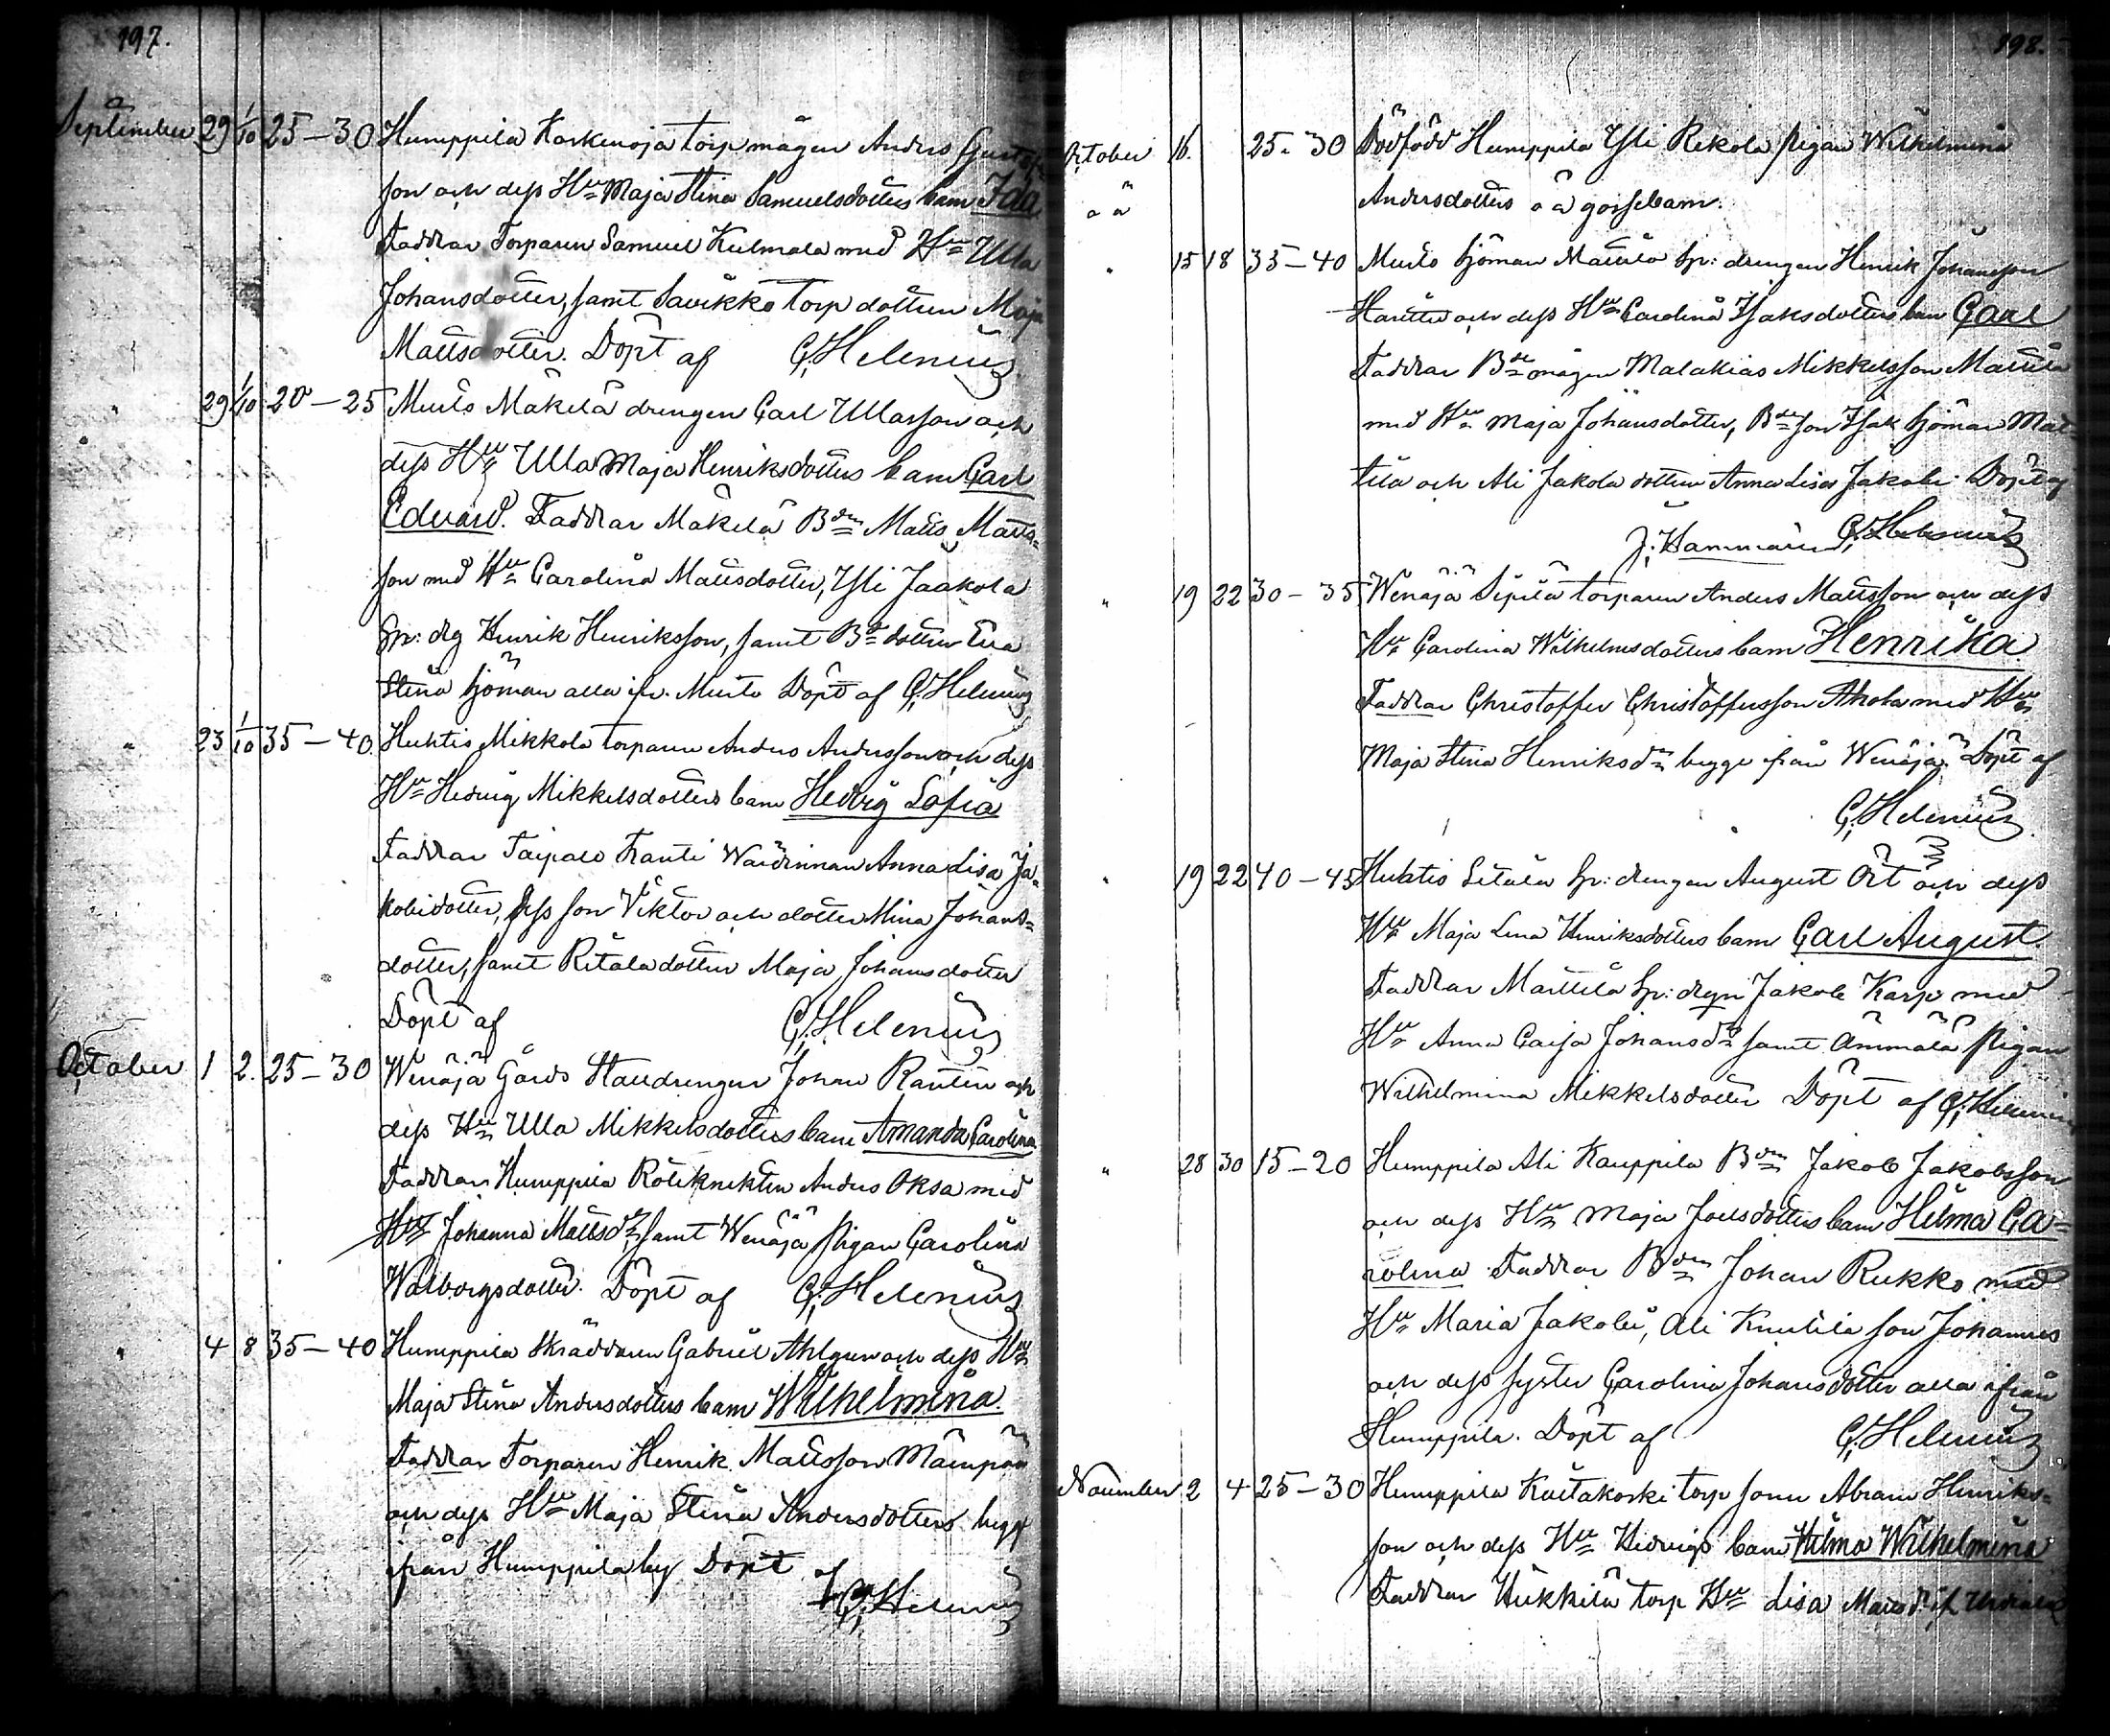 197.
September 29 1/10 25–30 Humppila Koskenoja torp mågen Anders Gustafs
son och dess Hu Maja Stina Samuelsdotters barn Ida
Faddrar Torparen Samuel Kulmala med Hu Ulla
Johansdotter, samt Savikko torp dottren Maja
Mattsdotter. Döpt af G. Helenius
" 29 1/10 20–25 Murto Mäkelä drengen Carl Ullasson och
dess Hu Ulla Maja Henriksdotters barn Carl
Edvard. Faddrar Mäkelä Bdn Matts Matts=
son med Hu Carolina Mattsdotter, Ysli Jaakola
Sp: drg Henrik Henriksson, samt Bde dottren Eva
Stina Sjöman alla ifr. Murto Döpt af G. Helenius
" 23 1/10 35–40 Huhtis Mikkola torparen Anders Andersson och dess
Hu Hedvig Mikkelsdotters barn Hedvig Sofia
Faddrar Taipale Kanti Wärdinnan Anna Lisa Ja=
kobidotter, dess son Viktor och dotter Mina Johans=
dotter, samt Ritala dottren Maja Johansdotter
Döpt af G. Helenius
October 1 2. 25–30 Wenäjä Gårds Stalldrengen Johan Rantin och
dess Hu Ulla Mikkelsdotters barn Amanda Carolina
Faddrar Humppila Roteknekten Anders Oksa med
Hu Johanna Mattsdr, samt Wenäjä pigan Carolina
Walborgsdotter. Döpt af G. Helenius
" 4 8 35–40 Humppila Skräddaren Gabriel Ahlgren och dess Hu
Maja Stina Andersdotters barn Wilhelmina.
Faddrar Torparen Henrik Mattsson Mäenpää
och dess Hu Maja Stina Andersdotters begge
ifrån Humppila by Döpt af
G. Helenius
198.
October 16. 25–30 Dödfödd Humppila Ysli Rekola pigan Wilhelmina
oä Andersdotters oä gossebarn.
" 15 18 35–40 Murto Sjöman Mattila Sp: drengen Henrik Johansson
och dess Hu Carolina Isaksdotters barn Carl
Faddrar Bde mågen Malakias Mikkelsson Mattila
med Hu Maja Johansdotter, Bde son Isak Sjöman Mat=
tila och Ali Jakola dottren Anna Lisa Jakobi Döpt af
J. Hammarén G. Helenius
" 19 22 30–35 Wenäjä Sipilä torparen Anders Mattsson och dess
Hu Carolina Wilhelmsdotters barn Henrika.
Faddrar Christoffer Christoffersson Ahola med Hu
Maja Stina Henriksdr begge ifrån Wenäjä. Döpt af
G. Helenius
" 19 22 40–45 Huhtis Sp: drengen August Ört och dess
Hu Maja Lena Henriksdotters barn Carl August
Faddrar Marttila Sp: drgn Jakob Karp med
Hu Anna Caisa Johansdr samt Ämmälä pigan
Wilhelmina Mikkelsdotter Döpt af G. Helenius
" 28 30 15–20 Humppila Ali Kauppila Bdn Jakob Jakobsson
och dess Hu Maja Joelsdotters barn Hilma Ca=
rolina Faddrar Bdn Johan Rukko med
Hu Maria Jakobi, Ali Knutila son Johannes
och dess syster Carolina Johansdotter alla ifrån
Humppila. Döpt af G. Helenius
November 2 4 25–30 Humppila Kurtakoski torp sonen Abram Henriks=
son och dess Hu Hedvigs barn Hilma Wilhelmina
Faddrar Hukkila torp Hu Lisa Mattsdr if. Urdiala